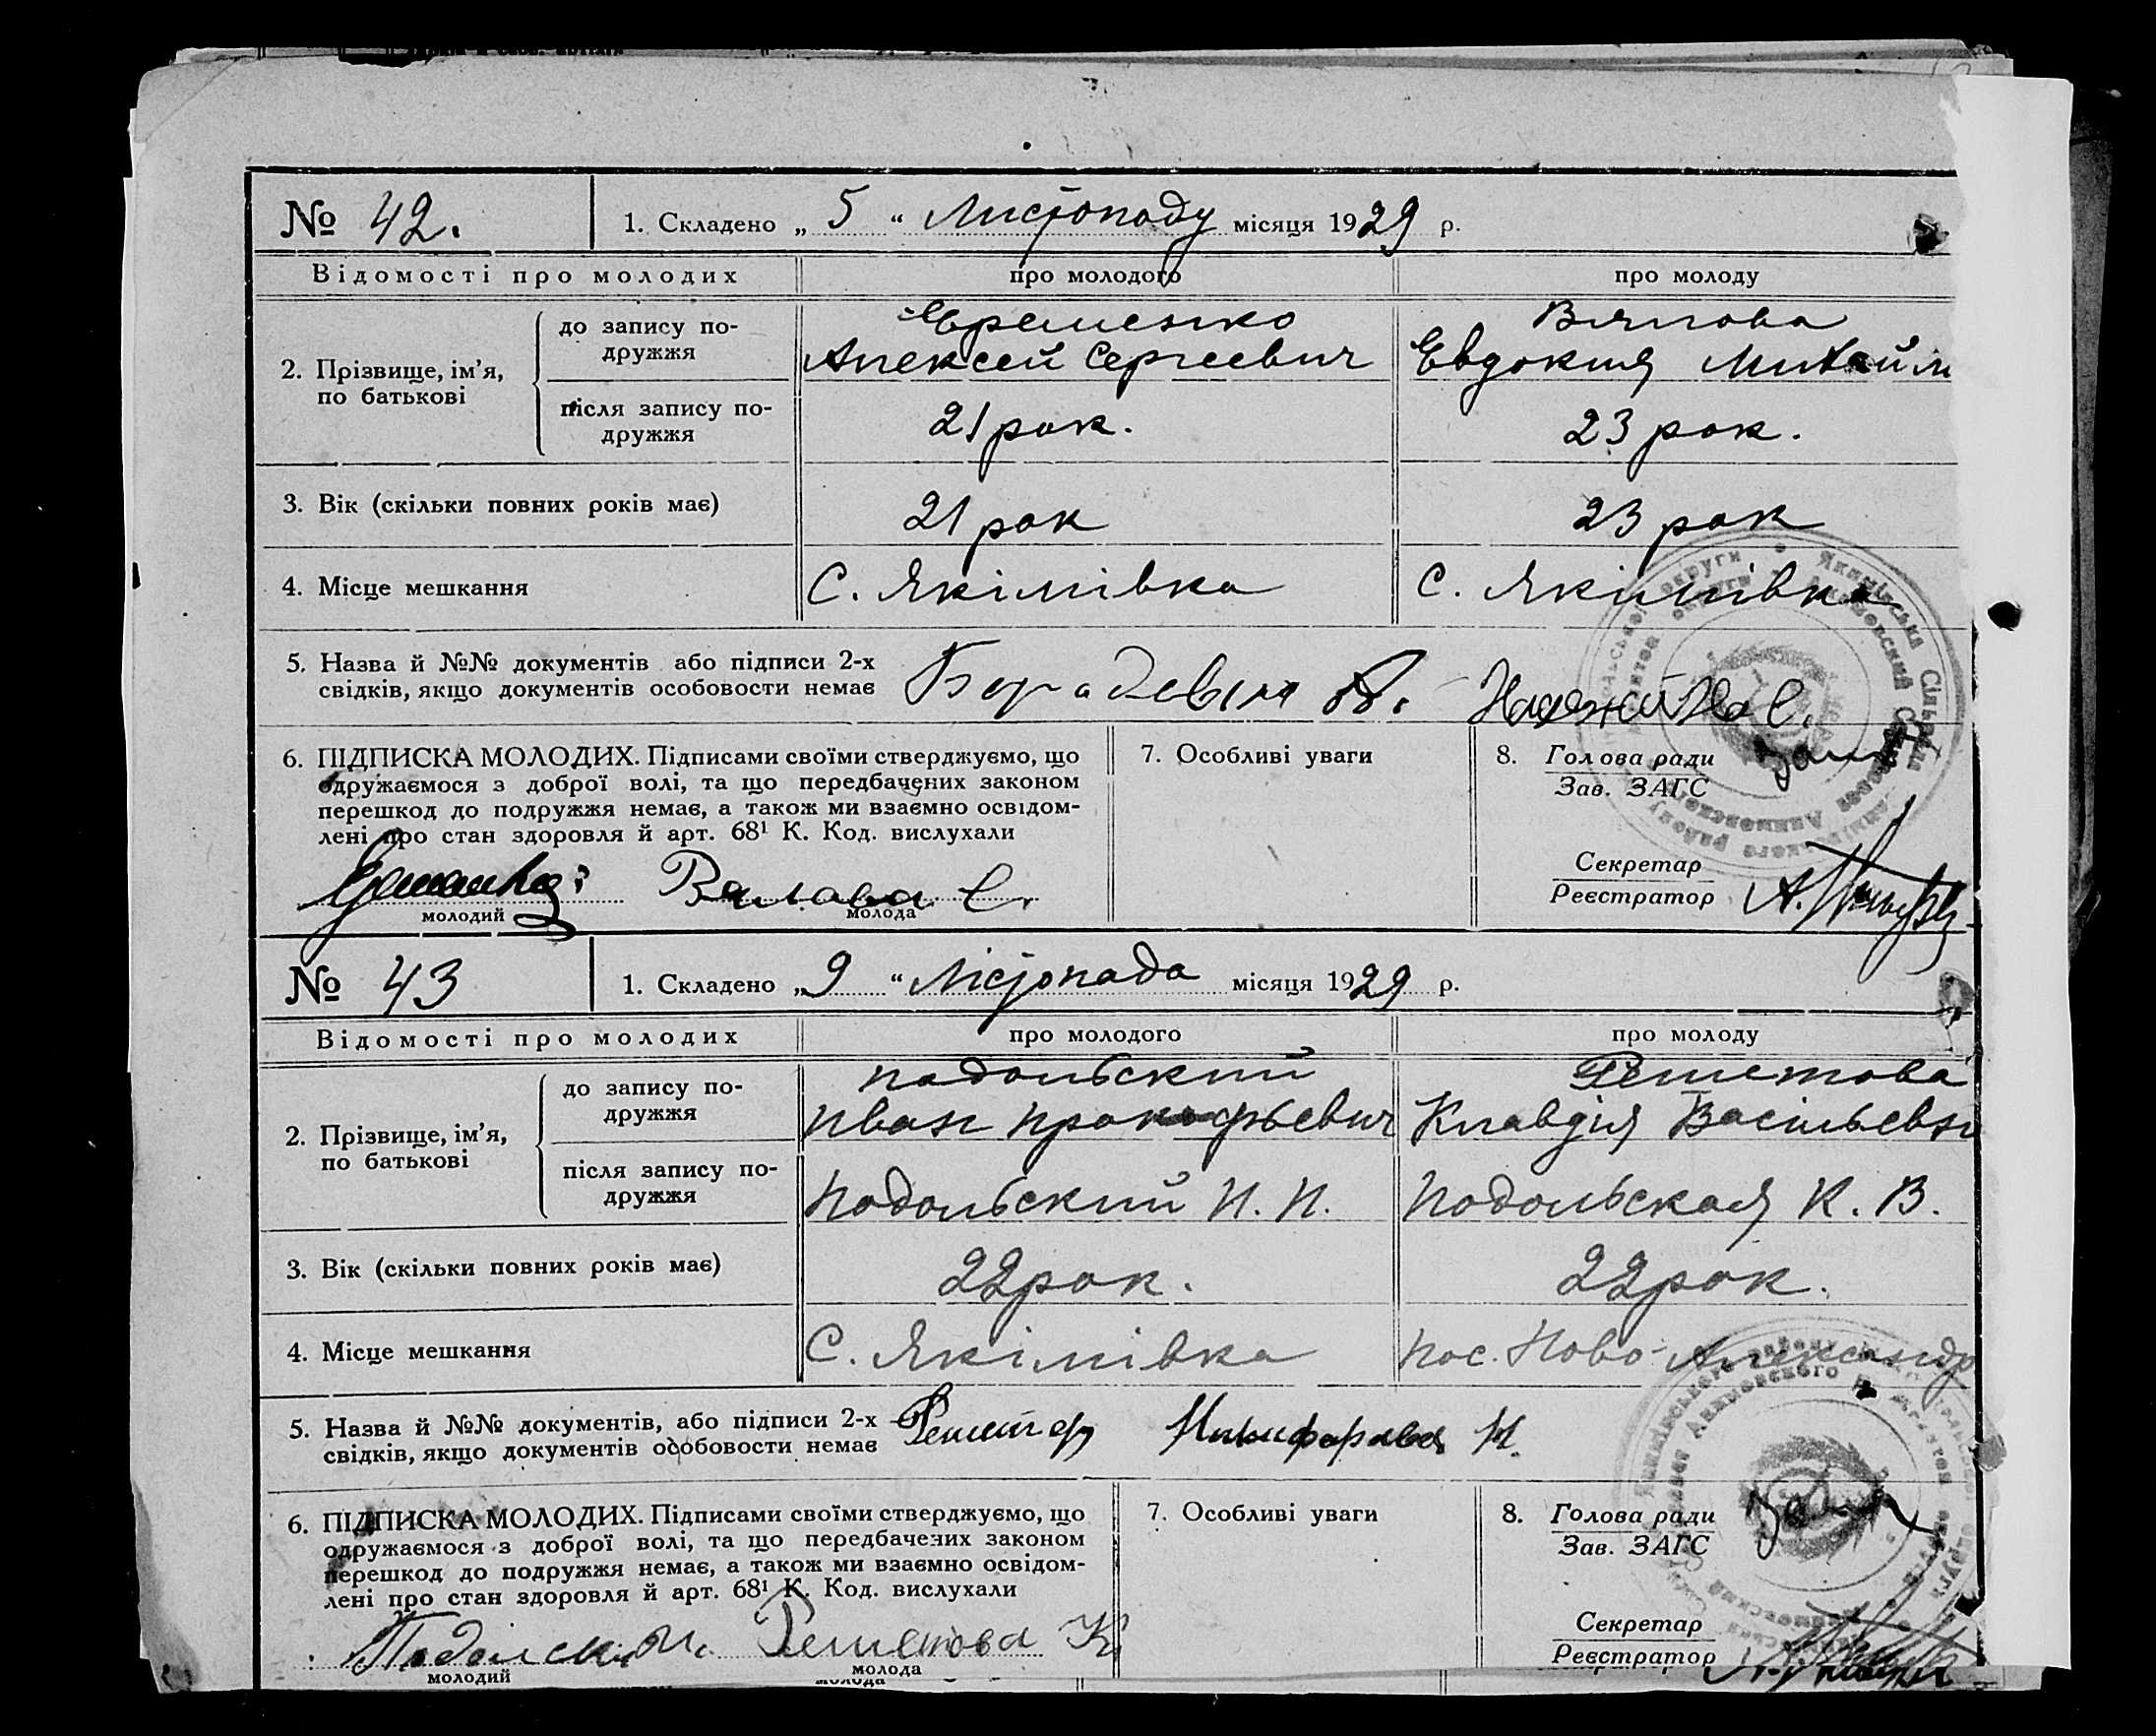 № 42.
1. Складено „ 5 “ Листопаду місяця 1929 р.
Відомості про молодих
про молодого
про молоду
2. Прізвище, ім’я, по батькові
до запису по-
дружжя
Еременко
Алексей Сергеевич
Вялова
Евдокия Михайл
після запису по-
дружжя
21 рок.
23 рок.
3. Вік (скільки повних років має)
21 рок
23 рок
4. Місце мешкання
С. Якімівка
С. Якимівка
5. Назва й №№ документів або підписи 2-х
свідків, якщо документів особовости немає
6. ПІДПИСКА МОЛОДИХ. Підписами своїми стверджуємо, що
одружаємося з доброї волі, та що передбачених законом
перешкод до подружжя немає, а також ми взаємно освідом-
лені про стан здоровля й арт. 68¹ К. Код. вислухали
Вялава Е.
молодий
молода
7. Особливі уваги
8. Голова ради
Зав. ЗАГС
Секретар
Реєстратор
№ 43
1. Складено „ 9 “ Лістопада місяця 1929 р.
Відомості про молодих
про молодого
про молоду
2. Прізвище, ім’я,
по батькові
до запису по-
дружжя
Подольский
Иван Прокофьевич
Решетова
Клавдия Васільевн
після запису по-
дружжя
Подольский И. П.
Подольская К. В.
3. Вік (скільки повних років має)
22 рок.
22 рок.
4. Місце мешкання
С. Якімівка
пос. Ново-Александр
5. Назва й №№ документів, або підписи 2-х
свідків, якщо документів особовости немає
Никифорова Н.
6. ПІДПИСКА МОЛОДИХ. Підписами своїми стверджуємо, що
одружаємося з доброї волі, та що передбачених законом
перешкод до подружжя немає, а також ми взаємно освідом-
лені про стан здоровля й арт. 68¹ К. Код. вислухали
Решетова К
молодий
молода
7. Особливі уваги
8. Голова ради
Зав. ЗАГС
Секретар
Реєстратор